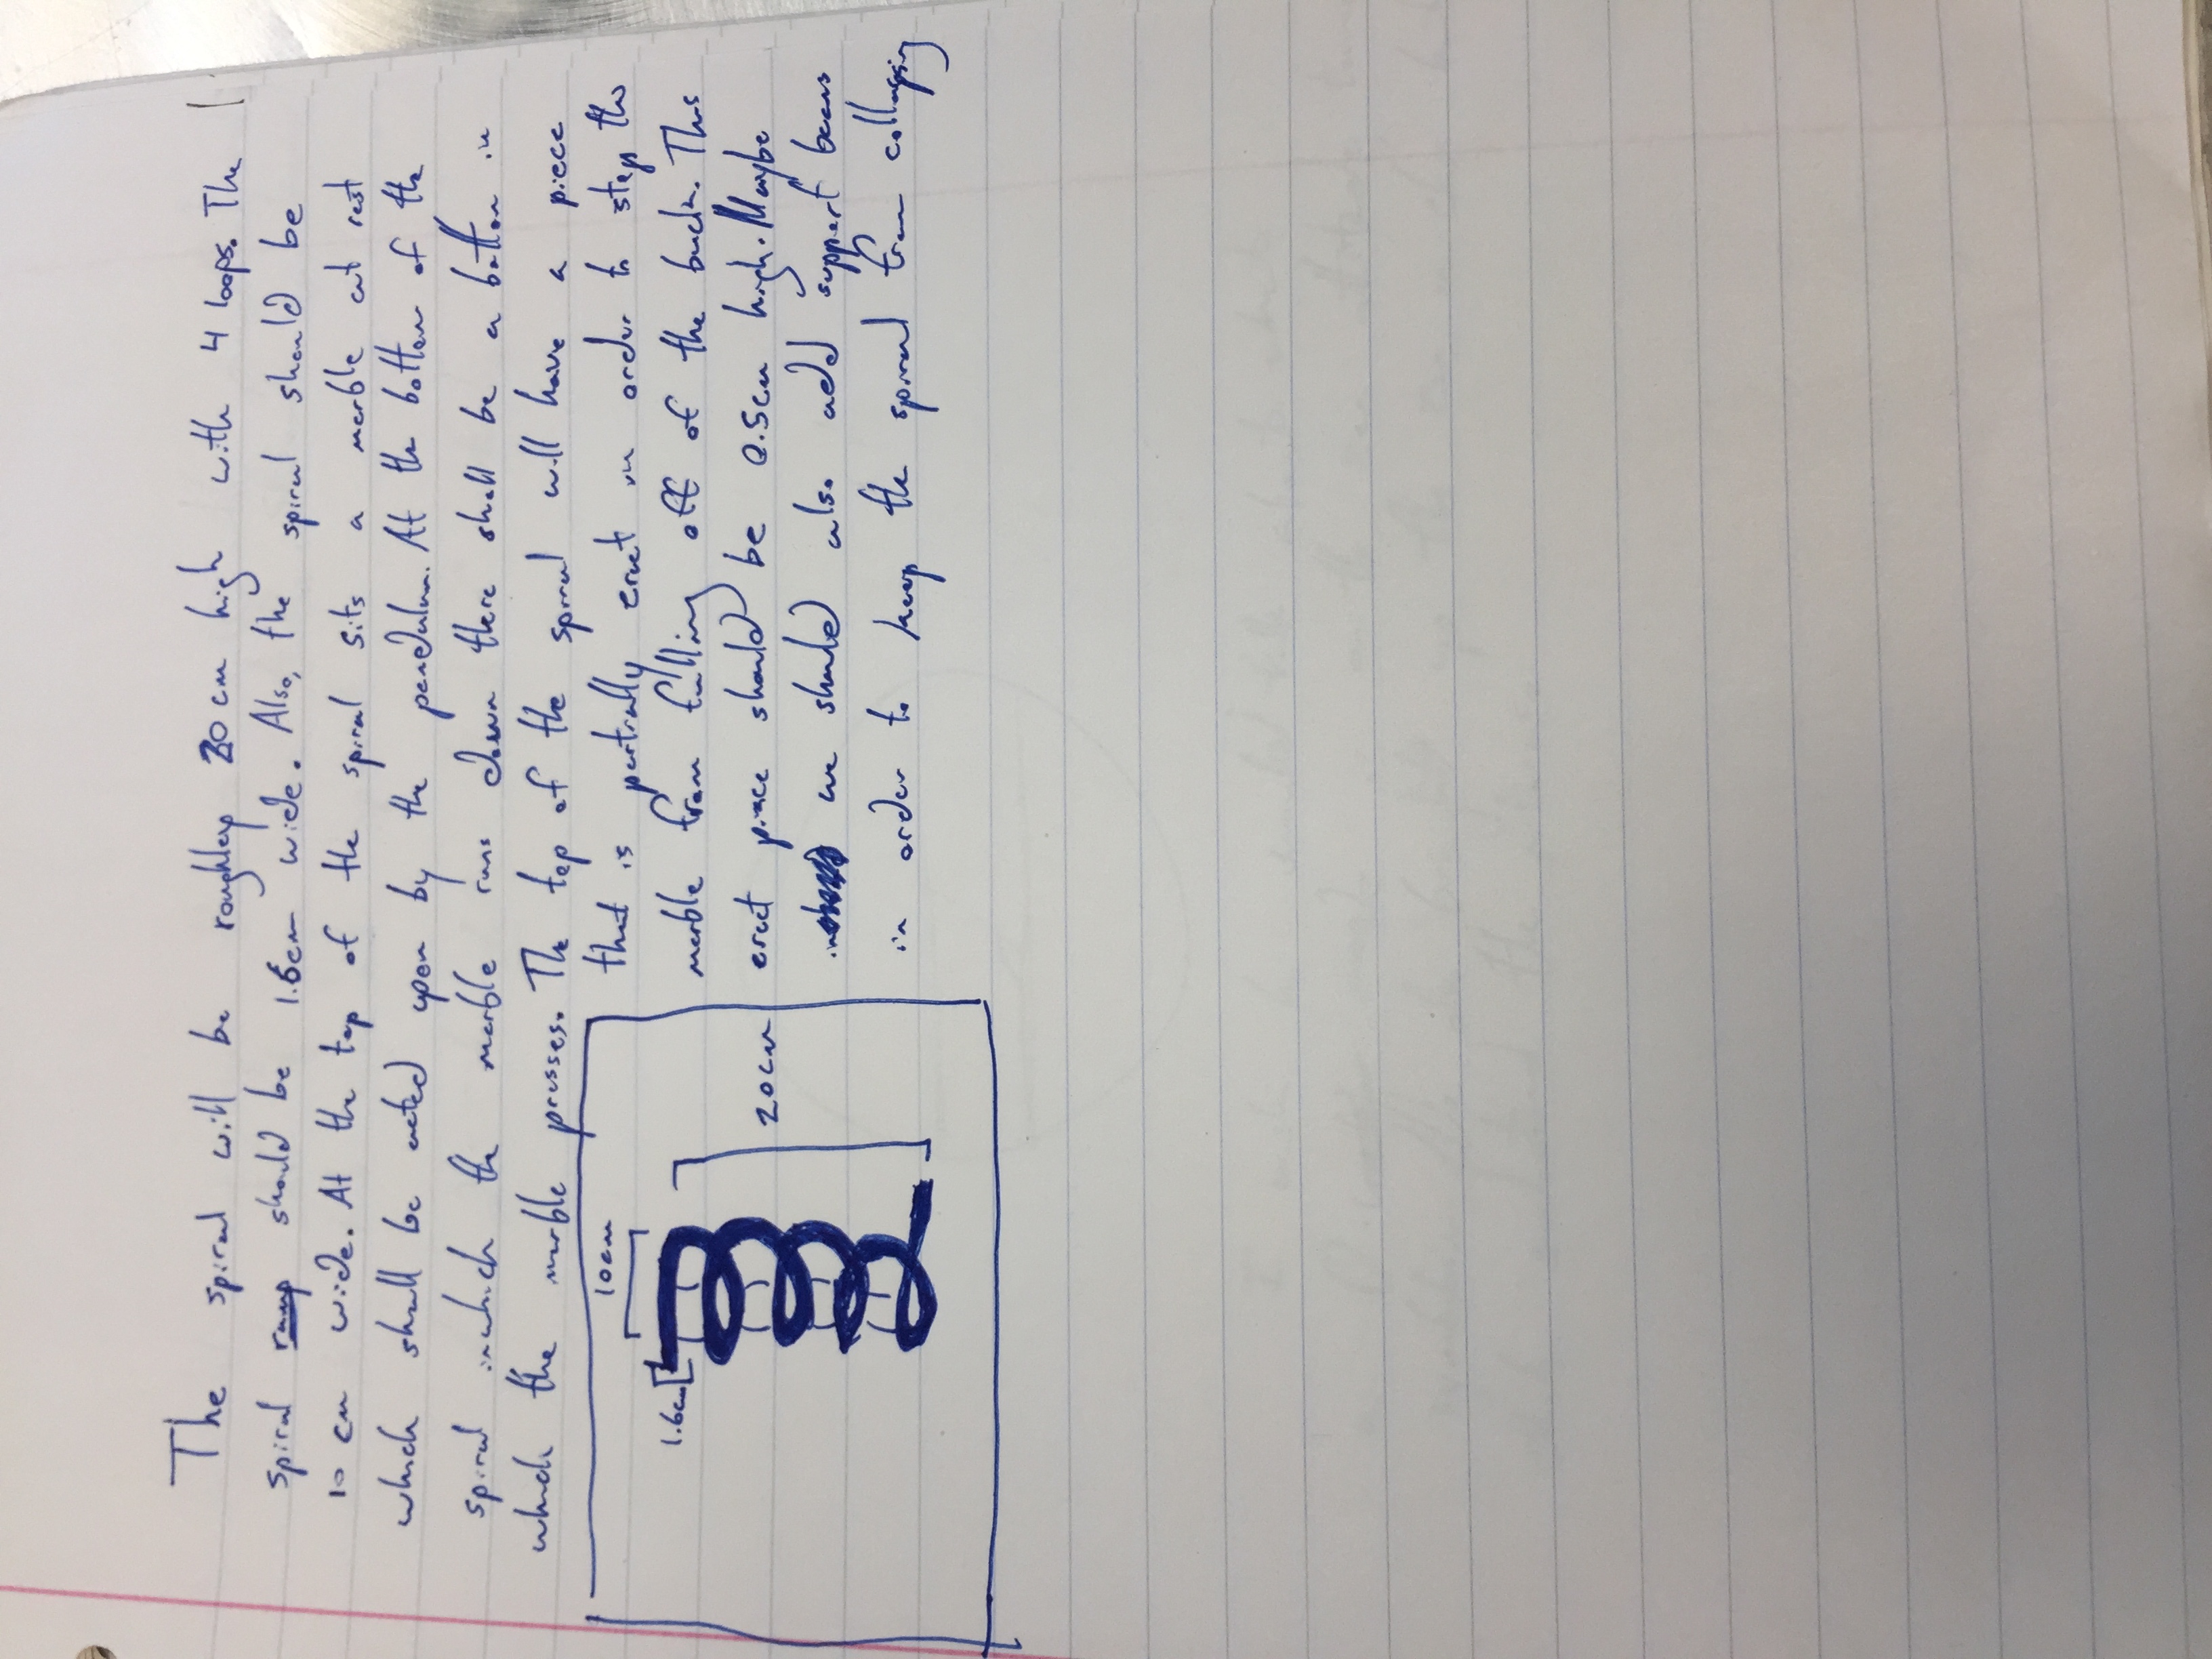 The spiral will be roughley 20 cm high with 4 loops. The
spiral ramp should be 1.6cm wide. Also, the spiral should be
10 cm wide. At the top of the spiral sits a marble at rest
which shall be acted upon by the pendulum. At the bottom of the
spiral inwhich the marble runs down there shall be a button in
which the marble presses. The top of the spiral will have a piece
that is partially erect in order to stop the
marble from falling off of the back. This
erect piece should be 0.5cm high. Maybe
we should also add support beams
in order to keep the spiral from collapsing
10cm
1.6cm
20cm